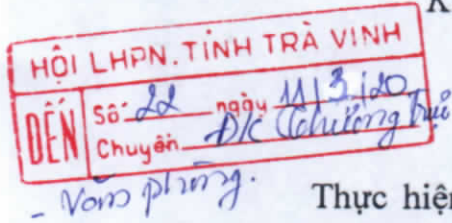 K
HỘI LHPN.TỈNH TRÀ VINH
ĐẾN
Số 22 ngày 11/3/20
Chuyển Đ/c Thường trực
- Văn phòng.
Thực hiện